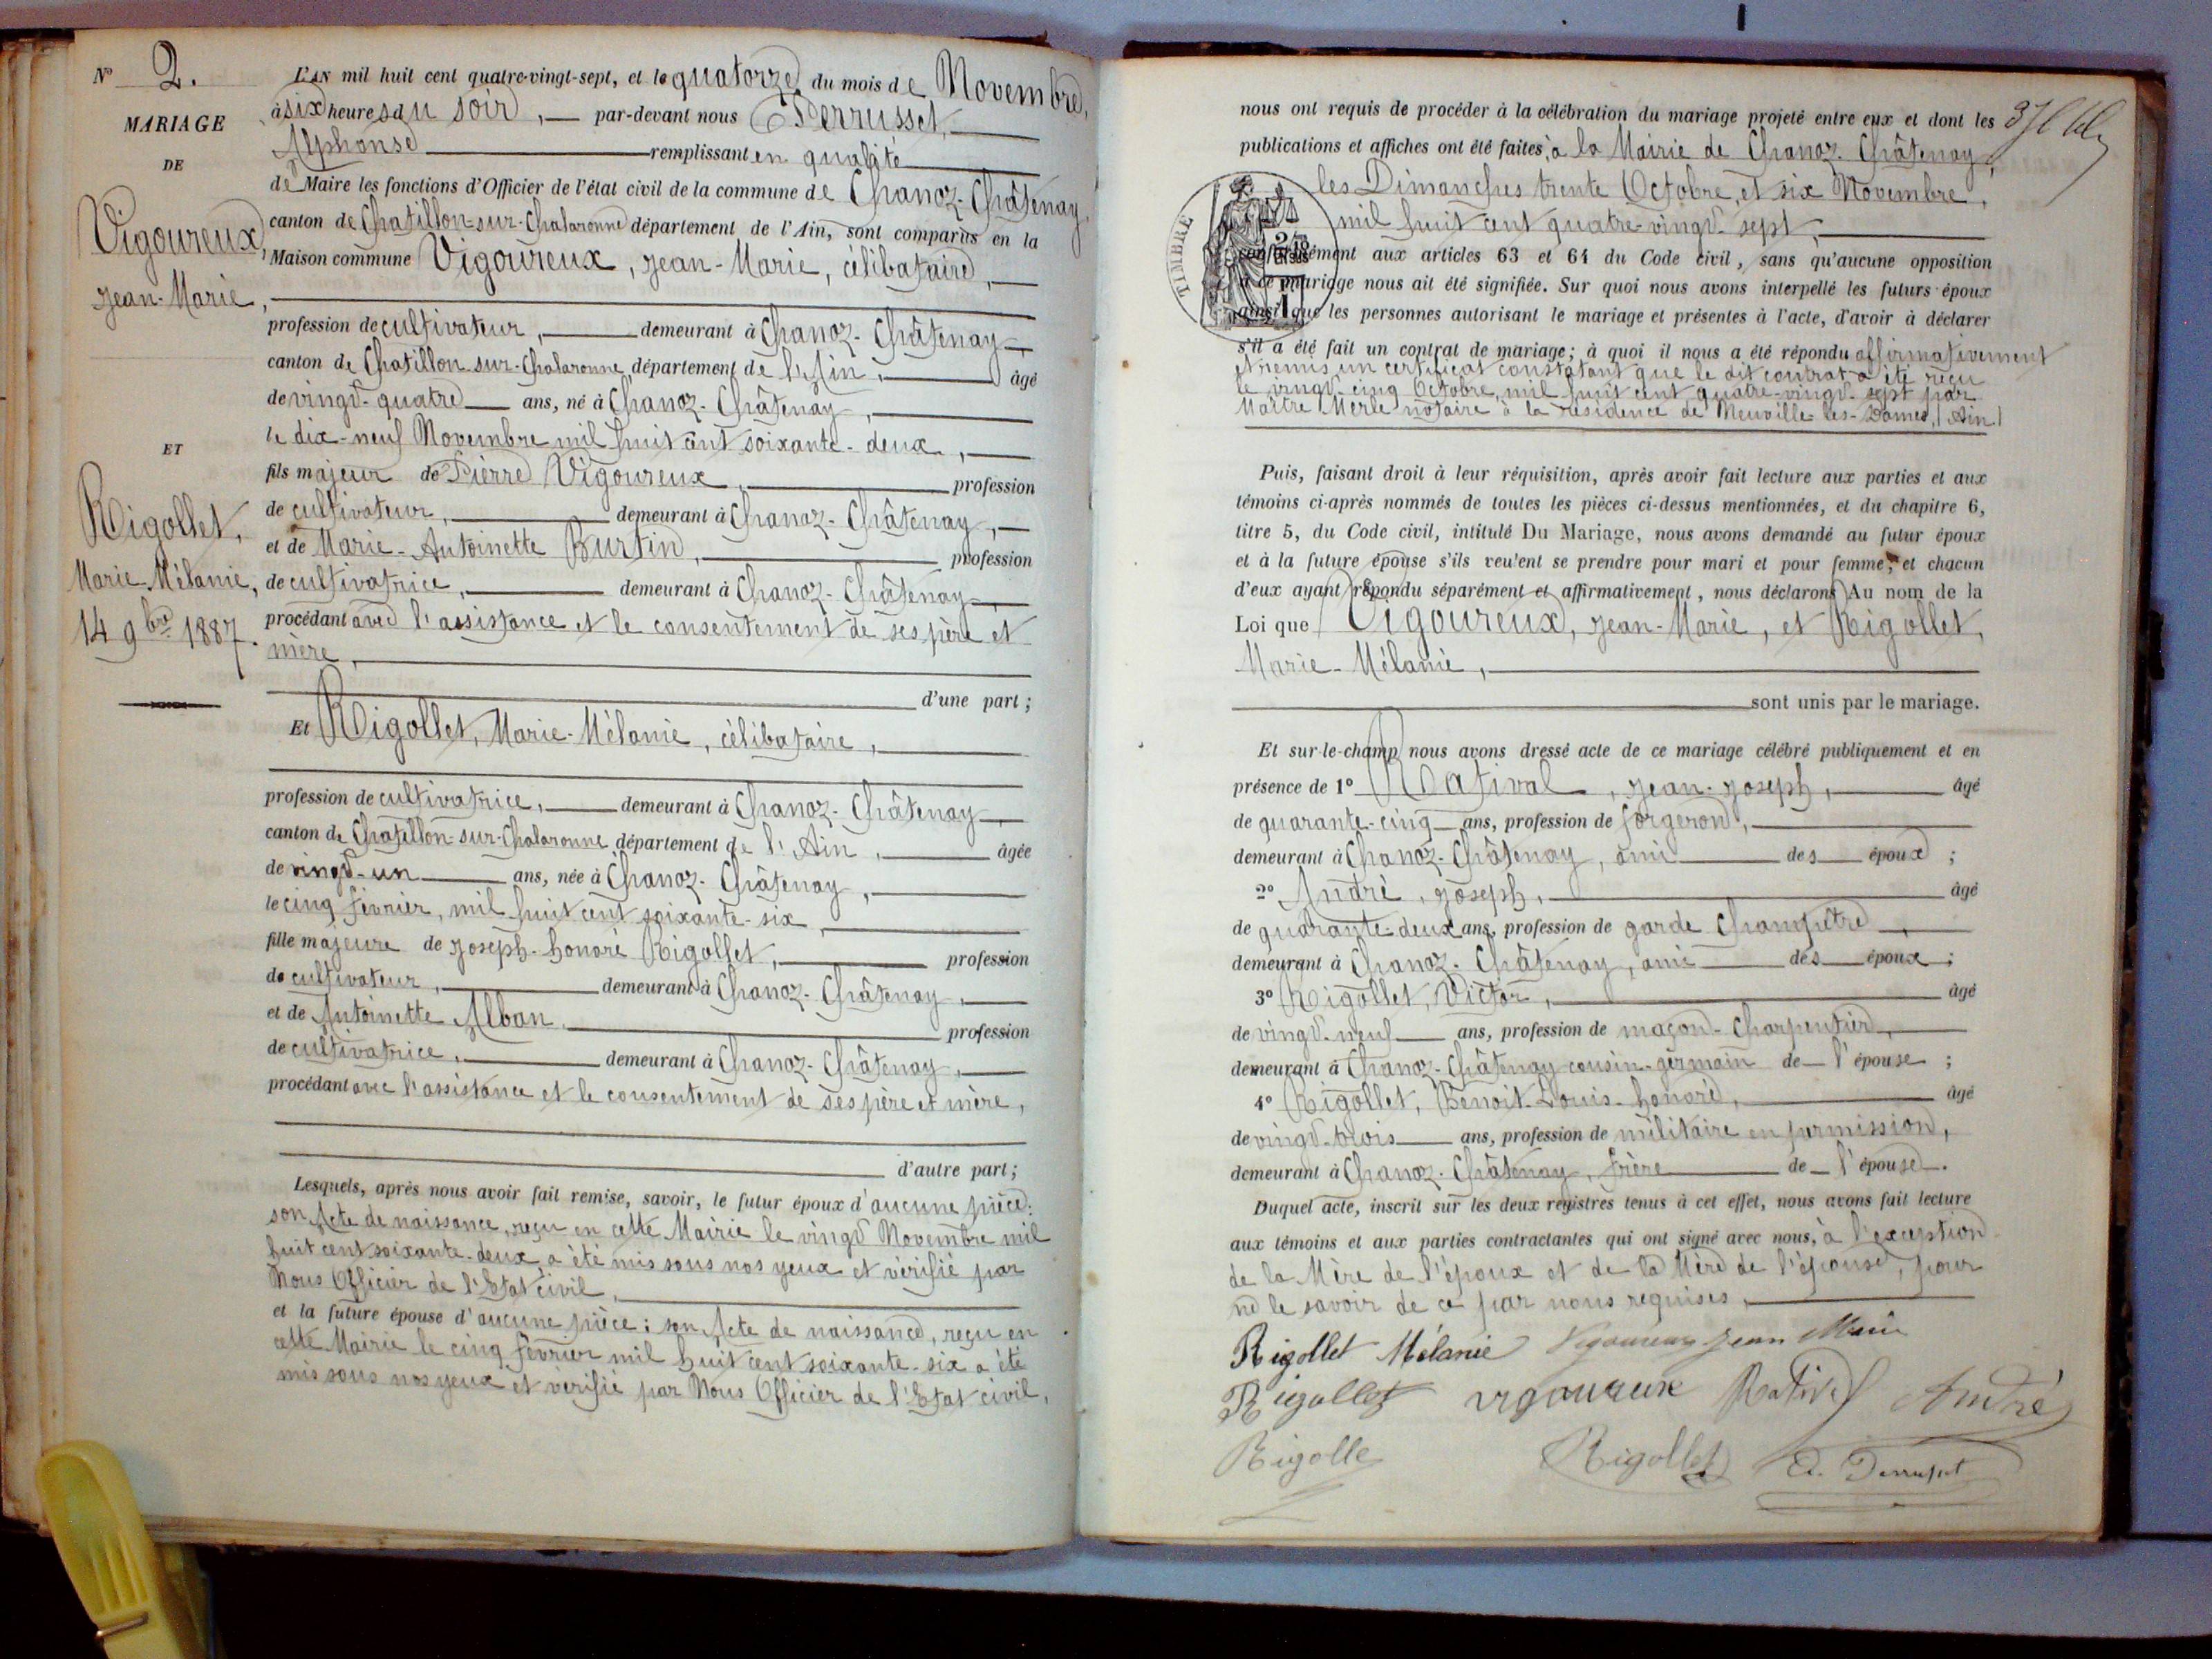 N° 2.
MARIAGE
DE
Vigoureux,
Jean-Marie,
ET
Rigollet,
Marie-Mélanie,
14 9bre 1887.
L'AN mil huit cent quatre-vingt-sept, et le quatorze du mois de Novembre,
à six heures du soir, par-devant nous Perrusset,
Alphonse remplissant en qualité
de Maire les fonctions d'Officier de l'état civil de la commune de Chanoz-Châtenay,
canton de Chatillon-sur-Chalaronne département de l'Ain, sont comparus en la
Maison commune Vigoureux, Jean-Marie, célibataire,
profession de cultivateur, demeurant à Chanoz-Châtenay,
canton de Chatillon-sur-Chalaronne, département de l'Ain, âgé
de vingt-quatre ans, né à Chanoz-Châtenay,
le dix-neuf Novembre mil huit cent soixante-deux,
fils majeur de Pierre Vigoureux, profession
de cultivateur, demeurant à Chanoz-Châtenay,
et de Marie-Antoinette Burtin, profession
de cultivatrice, demeurant à Chanoz-Châtenay,
procédant avec l'assistance et le consentement de ses père et
mère,
d'une part;
Et Rigollet, Marie-Mélanie, célibataire,
profession de cultivatrice, demeurant à Chanoz-Châtenay,
canton de Chatillon-sur-Chalaronne, département de l'Ain, âgée
de vingt-un ans, née à Chanoz-Châtenay,
le cinq février, mil huit cent soixante-six,
fille majeure de Joseph-honoré Rigollet, profession
de cultivateur, demeurant à Chanoz-Châtenay,
et de Antoinette Alban, profession
de cultivatrice, demeurant à Chanoz-Châtenay,
procédant avec l'assistance et le consentement de ses père et mère,
d'autre part;
Lesquels, après nous avoir fait remise, savoir, le futur époux d'aucune pièce:
son Acte de naissance, reçu en cette Mairie le vingt Novembre mil
huit cent soixante-deux, a été mis sous nos yeux et vérifié par
Nous Officier de l'Etat civil,
et la future épouse d'aucune pièce: son Acte de naissance, reçu en
cette Mairie le cinq février mil huit cent soixante-six a été
mis sous nos yeux et verifié par Nous Officier de l'Etat civil,
nous ont requis de procéder à la célébration du mariage projeté entre eux et dont les
publications et affiches ont été faites, à la Mairie de Chanoz-Châtenay,
les Dimanches trente Octobre, et six Novembre,
mil huit cent quatre-vingt-sept,
TIMBRE
conformément aux articles 63 et 64 du Code civil, sans qu'aucune opposition
à ce mariage nous ait été signifiée. Sur quoi nous avons interpellé les futurs époux
ainsi que les personnes autorisant le mariage et présentes à l'acte, d'avoir à déclarer
s'il a été fait un contrat de mariage; à quoi il nous a été répondu affirmativement
et remis un certificat constatant que le dit contrat a été reçu
le vingt-cinq Octobre, mil huit cent quatre-vingt-sept par
Maître Merle notaire à la résidence de Neuville-les-Dames, (Ain)
Puis, faisant droit à leur réquisition, après avoir fait lecture aux parties et aux
témoins ci-après nommés de toutes les pièces ci-dessus mentionnées, et du chapitre 6,
titre 5, du Code civil, intitulé Du Mariage, nous avons demandé au futur époux
et à la future épouse s'ils veulent se prendre pour mari et pour femme, et chacun
d'eux ayant répondu séparément et affirmativement, nous déclarons Au nom de la
Loi que Vigoureux, Jean-Marie, et Rigollet,
Marie-Mélanie,
sont unis par le mariage.
Et sur-le-champ nous avons dressé acte de ce mariage célébré publiquement et en
présence de 1° Ratival, Jean-Joseph, âgé
de quarante-cinq ans, profession de forgeron,
demeurant à Chanoz-Châtenay, ami des époux;
2° André, Joseph, âgé
de quarante-deux ans, profession de garde Champêtre,
demeurant à Chanoz-Châtenay, ami des époux;
3° Rigollet, Victor, âgé
de vingt-neuf ans, profession de maçon-Charpentier,
demeurant à Chanoz-Châtenay cousin-germain de l'épouse;
4° Rigollet, Benoit-Louis-honoré, âgé
de vingt-trois ans, profession de militaire en permission,
demeurant à Chanoz-Châtenay, frère de l'épouse.
Duquel acte, inscrit sur les deux registres tenus à cet effet, nous avons fait lecture
aux témoins et aux parties contractantes qui ont signé avec nous, à l'exception
de la Mère de l'époux et de la Mère de l'épouse, pour
ne le savoir de ce par nous requises,
Rigollet Mélanie Vigoureux Jean Marie
Rigollet vigoureux Rativel André
Rigolle Rigollet A. Perrusset